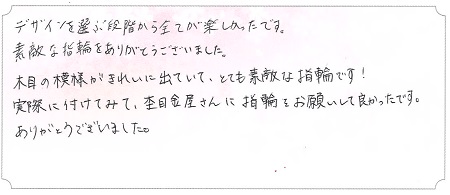 デザインを選ぶ段階から全てが楽しかったです。
素敵な指輪をありがとうございました。
木目の模様がきれいに出ていて、とても素敵な指輪です！
実際に付けてみて、杢目金屋さんに指輪をお願いして良かったです。
ありがとうございました。